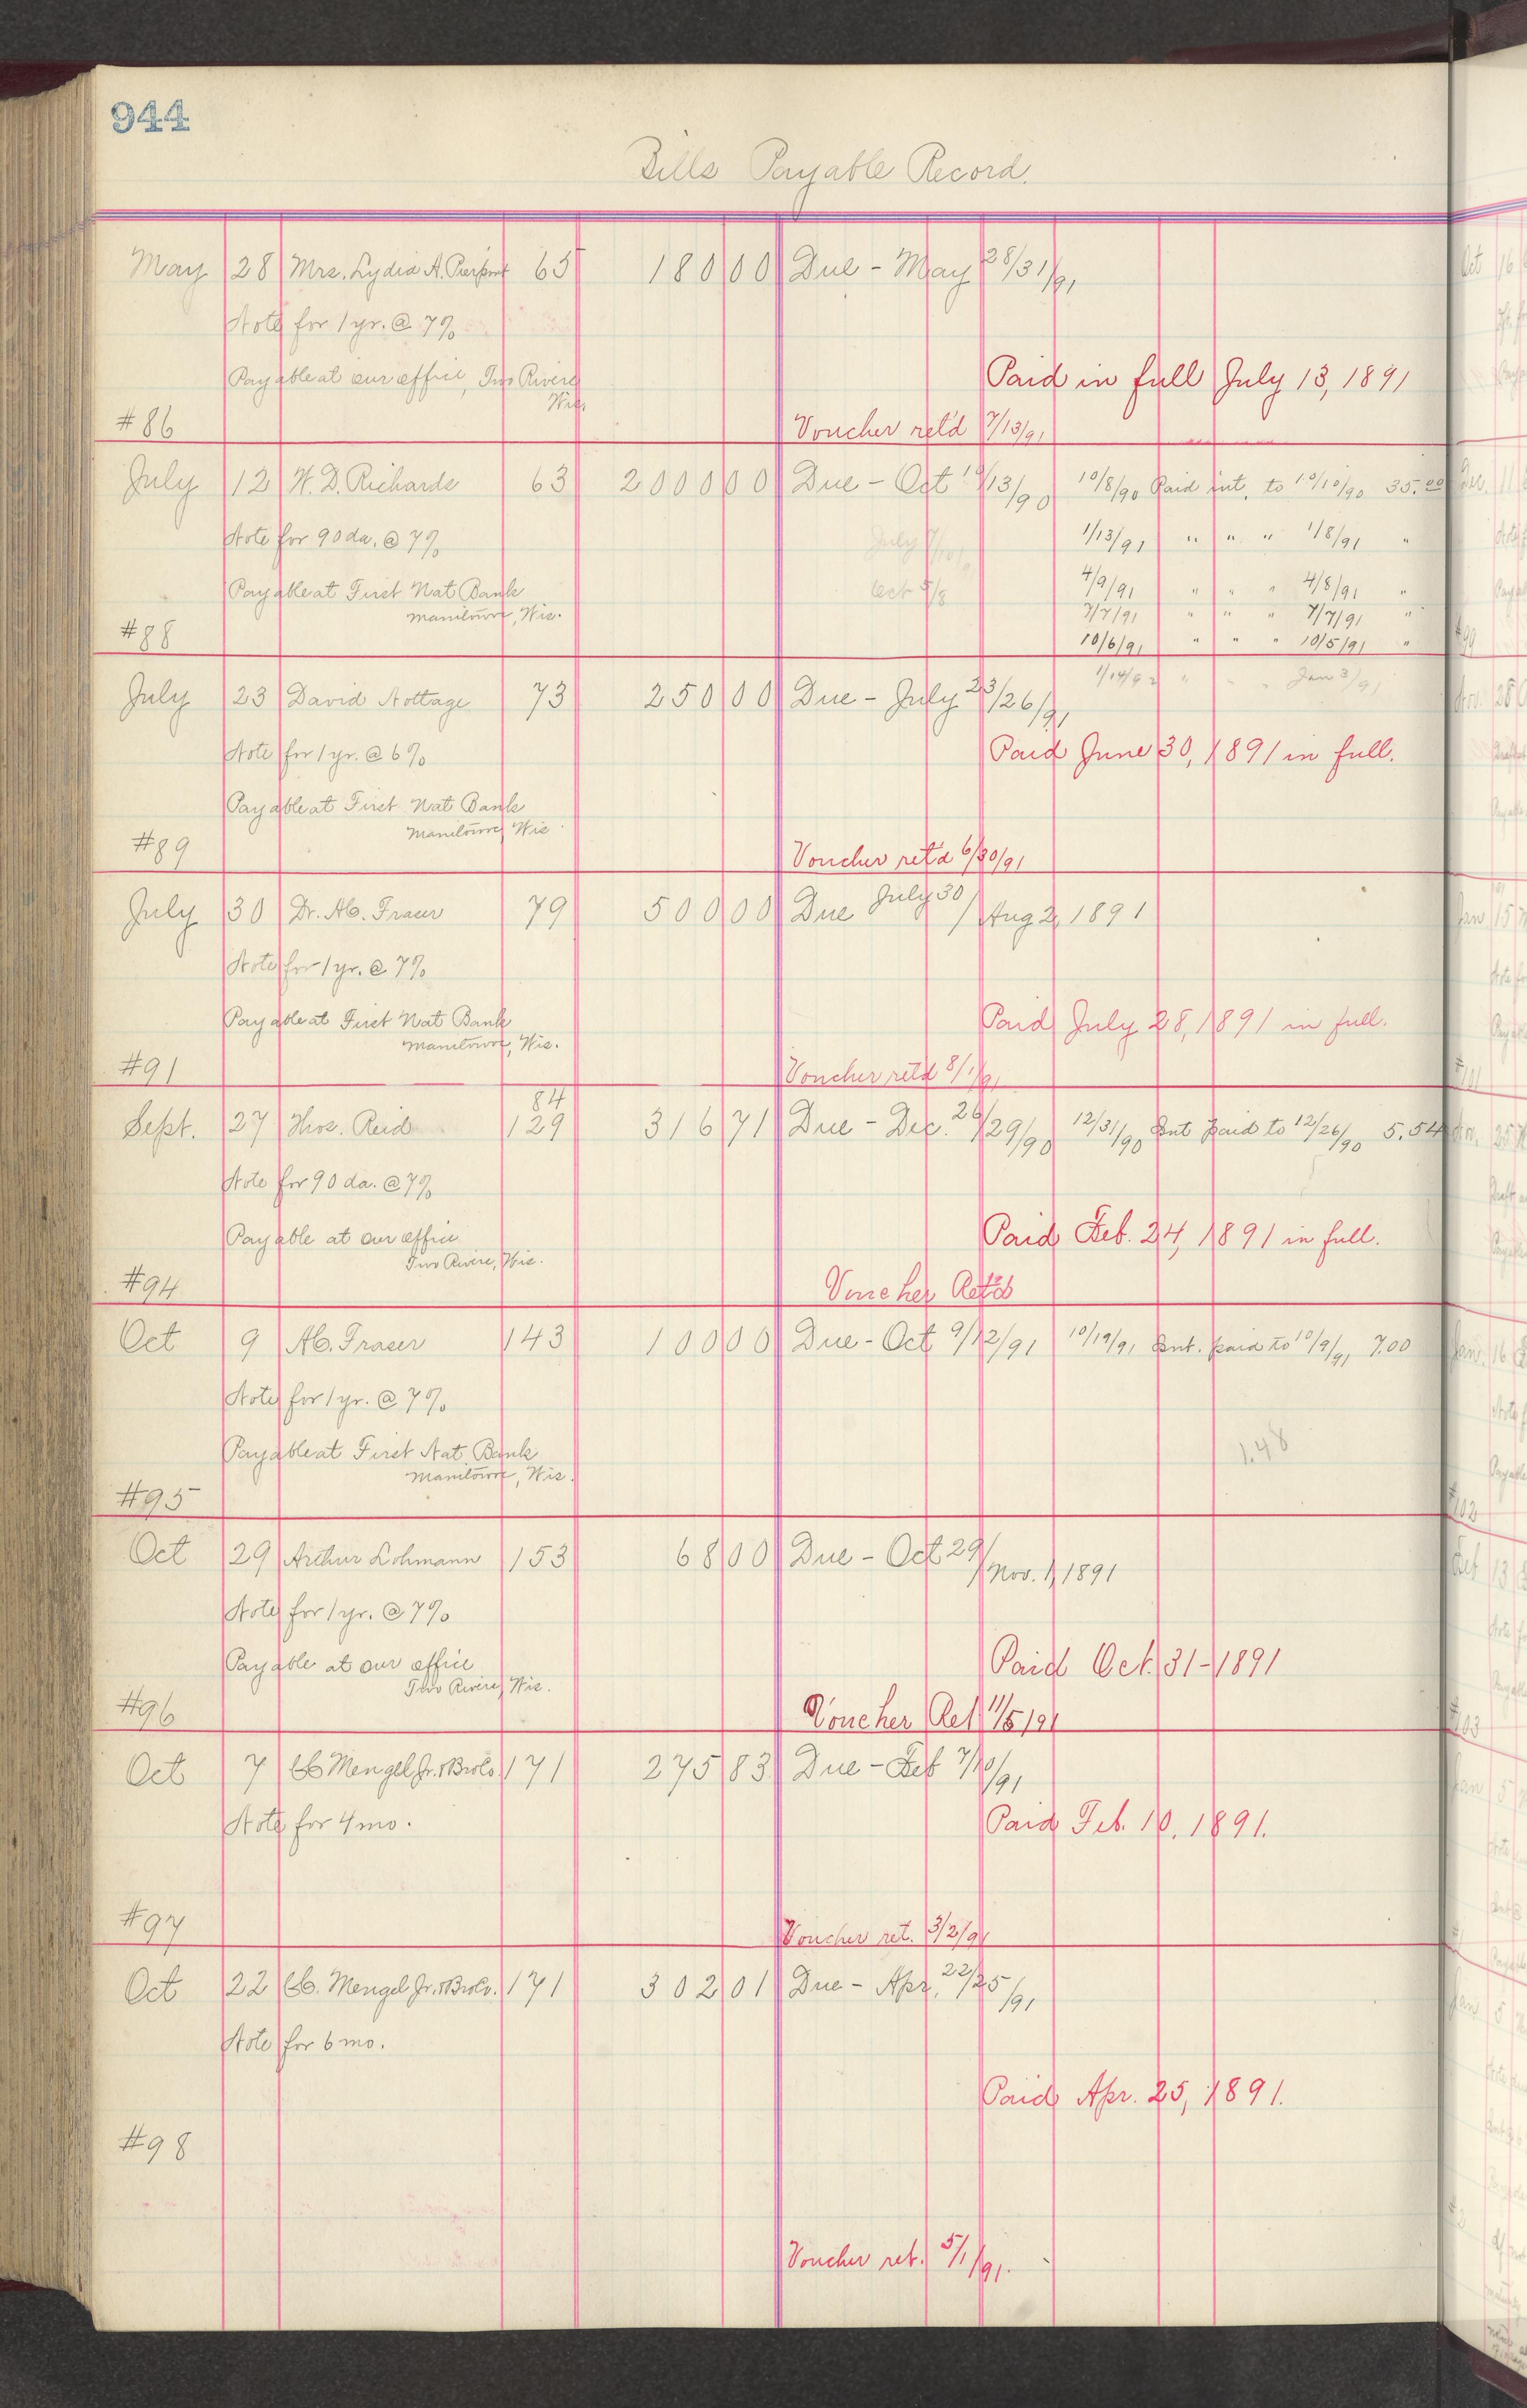 944
Bills Payable Record.
May 28 Mrs. Lydia A. Pierpont 65 180 00 Due - May 28/31/91
Note for 1 yr. @ 7%
Payable at our office, Two Rivers Paid in full July 13, 1891
Wis.
#86 Voucher ret'd 7/13/91
July 12 W. D. Richards 63 2000 00 Due - Oct 10/13/90 10/8/90 Paid int. to 10/10/90 35.00
Note for 90 da. @ 7% July 7/10/ 1/13/91 " " " 1/8/91 "
Payable at First Nat Bank Oct 5/8 4/9/91 " " " 4/8/91 "
Manitowoc, Wis. 7/7/91 " " " 7/7/91 "
#88 10/6/91 " " " 10/5/91 "
1/14/92 " " " Jan 3/91
July 23 David Nottage 73 250 00 Due - July 23/26/91
Note for 1 yr. @ 6% Paid June 30, 1891 in full.
Payable at First Nat Bank
Manitowoc, Wis
#89 Voucher ret'd 6/30/91
July 30 Dr. A.C. Fraser 79 500 00 Due July 30/Aug 2, 1891
Note for 1 yr. @ 7%
Payable at First Nat Bank Paid July 28, 1891 in full.
Manitowoc, Wis.
#91 Voucher retd 8/1/91
84
Sept. 27 Thos. Reid 129 316 71 Due - Dec. 26/29/90 12/31/90 Int paid to 12/26/90 5.54
Note for 90 da. @ 7%
Payable at our office Paid Feb. 24, 1891 in full.
Two Rivers, Wis.
#94 Voucher Ret'd
Oct 9 A.C. Fraser 143 100 00 Due - Oct 9/12/91 10/19/91 Int. paid to 10/9/91 7.00
Note for 1 yr. @ 7%
Payable at First Nat. Bank 1.48
Manitowoc, Wis.
#95
Oct 29 Arthur Lohmann 153 68 00 Due - Oct 29/Nov. 1, 1891
Note for 1 yr. @ 7%
Payable at our office Paid Oct. 31-1891
Two Rivers, Wis.
#96 Voucher Ret 11/5/91
Oct 7 CC Mengel Jr. & Bro Co. 171 275 83 Due - Feb 7/10/91
Note for 4 mo. Paid Feb. 10, 1891.
#97 Voucher ret. 3/2/91
Oct 22 CC. Mengel Jr. & Bro Co. 171 302 01 Due - Apr. 22/25/91
Note for 6 mo.
Paid Apr. 25, 1891.
#98
Voucher ret. 5/1/91.